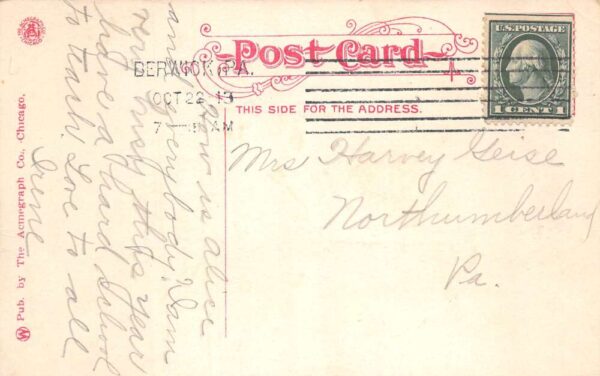 Post Card
THIS SIDE FOR THE ADDRESS.
BERWICK, PA.
OCT 22 13
7 AM
U.S. POSTAGE
1 CENT 1
How is alice
and everybody. I am
very busy this year
have a hard school
to teach. Love to all
Irene
Mrs Harvey Geise
Northumberland
Pa.
Pub. by The Acmegraph Co., Chicago.